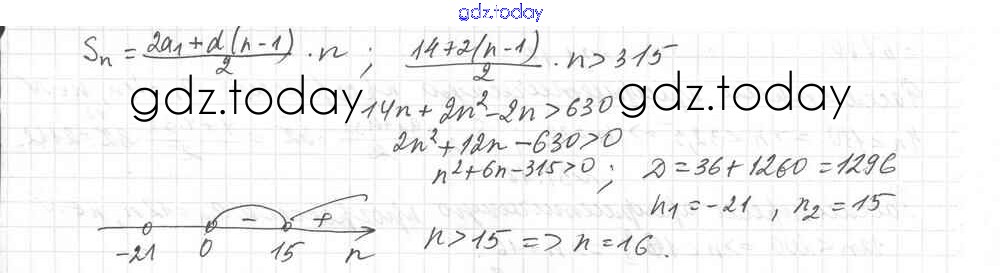 gdz.today
Sₙ = (2a₁ + d(n-1))/2 · n ; (14+2(n-1))/2 · n > 315
gdz.today gdz.today
14n + 2n² - 2n > 630
2n² + 12n - 630 > 0
n² + 6n - 315 > 0 ; D = 36 + 1260 = 1296
n₁ = -21 , n₂ = 15
- +
-21 0 15 n
n > 15 => n = 16.